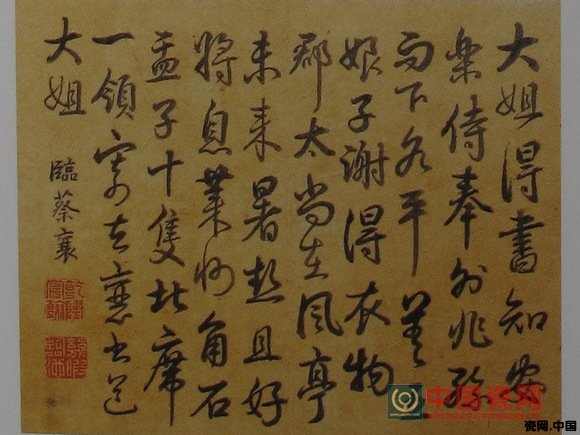 大姐得書知安
樂侍奉外兆孫
而下各平善
娘子謝得衣物
郡太尚在風亭
未來暑熱且好
將息萊州角石
盂子十隻北席
一領寄去襄書送
大姐
臨蔡襄
中国瓷网
瓷网.中国